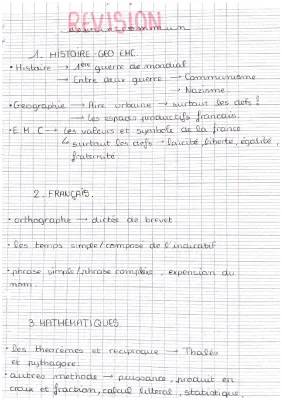 REVISION
devoir commun
1. HISTOIRE-GEO EMC.
• Histoire → 1ère guerre de mondial
→ Entre deux guerre → Communisme
→ Nazisme.
• Géographie → Aire urbaine → surtout les defs !
→ les espaces productifs francais.
• E.M.C → les valeurs et symbole de la france
↳ surtout les defs → laïcité, liberté, égalité,
fraternité
2. FRANÇAIS.
• orthographe → dictée de brevet
• les temps simple/composé de l'indicatif
• phrase simple/phrase complexe, expension du
nom.
3. MATHEMATIQUES
• les théorèmes et réciproque → Thalès
et pythagore.
• autres methode → puissance, produit en
croix et fraction, calcul litteral, statistique.